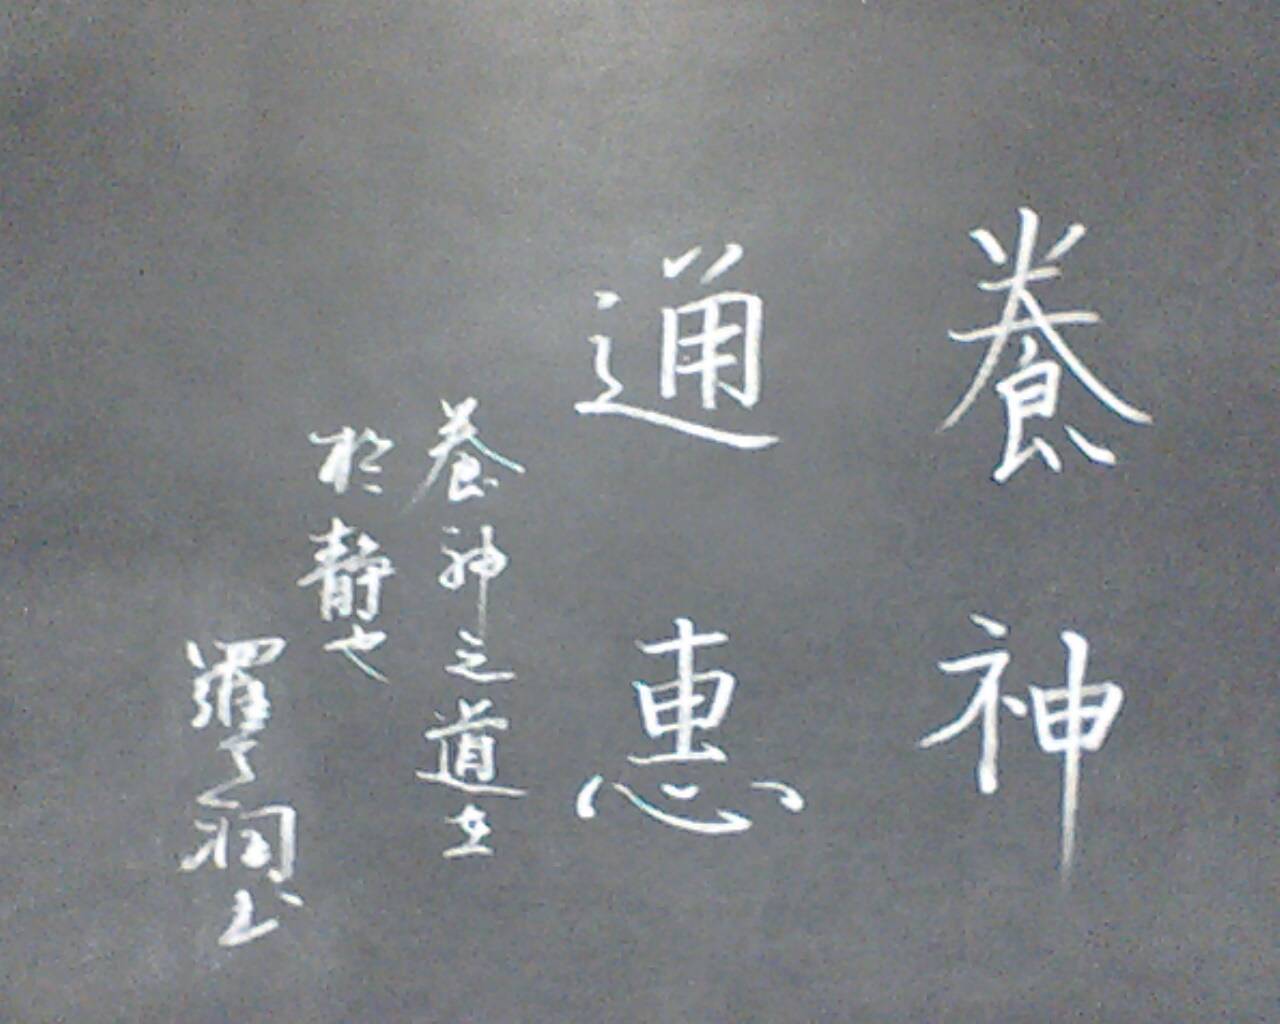 養神
通惠
養神之道在
於静也
羅